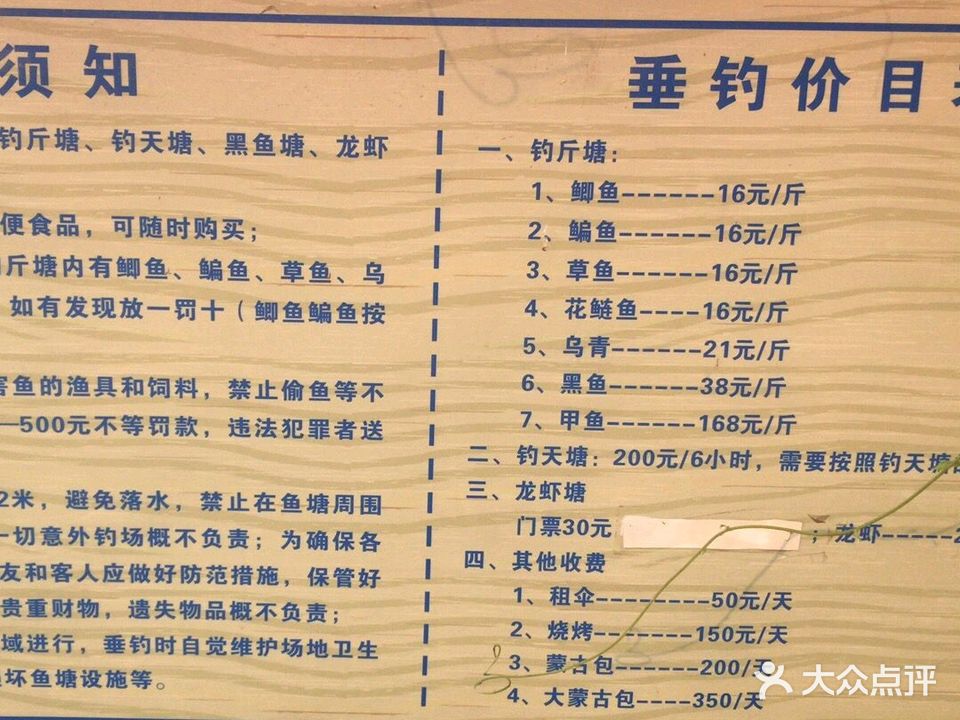 须知
钓斤塘、钓天塘、黑鱼塘、龙虾
便食品，可随时购买；
斤塘内有鲫鱼、鳊鱼、草鱼、乌
如有发现放一罚十（鲫鱼鳊鱼按
害鱼的渔具和饲料，禁止偷鱼等不
—500元不等罚款，违法犯罪者送
2米，避免落水，禁止在鱼塘周围
一切意外钓场概不负责；为确保各
友和客人应做好防范措施，保管好
贵重财物，遗失物品概不负责；
域进行，垂钓时自觉维护场地卫生
坏鱼塘设施等。
垂钓价目表
一、钓斤塘：
1、鲫鱼------16元/斤
2、鳊鱼------16元/斤
3、草鱼------16元/斤
4、花鲢鱼----16元/斤
5、乌青------21元/斤
6、黑鱼------38元/斤
7、甲鱼------168元/斤
二、钓天塘：200元/6小时，需要按照钓天塘
三、龙虾塘
门票30元 ；龙虾-----2
四、其他收费
1、租伞--------50元/天
2、烧烤-------150元/天
3、蒙古包------200/天
4、大蒙古包----350/天
大众点评